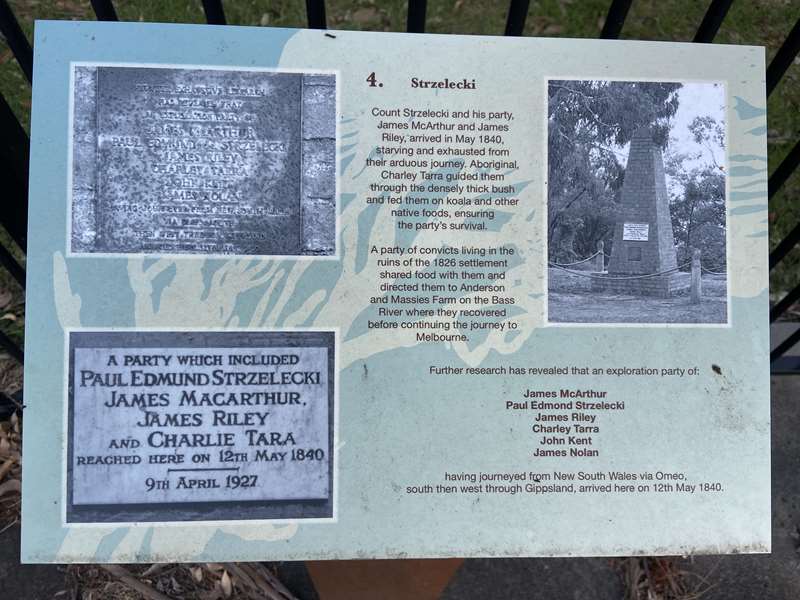 4. Strzelecki
Count Strzelecki and his party,
James McArthur and James
Riley, arrived in May 1840,
starving and exhausted from
their arduous journey. Aboriginal,
Charley Tarra guided them
through the densely thick bush
and fed them on koala and other
native foods, ensuring
the party's survival.
A party of convicts living in the
ruins of the 1826 settlement
shared food with them and
directed them to Anderson
and Massies Farm on the Bass
River where they recovered
before continuing the journey to
Melbourne.
Further research has revealed that an exploration party of:
James McArthur
Paul Edmond Strzelecki
James Riley
Charley Tarra
John Kent
James Nolan
having journeyed from New South Wales via Omeo,
south then west through Gippsland, arrived here on 12th May 1840.
JAMES RILEY
JAMES NOLAN
A PARTY WHICH INCLUDED
PAUL EDMUND STRZELECKI
JAMES MACARTHUR,
JAMES RILEY
AND CHARLIE TARA
REACHED HERE ON 12TH MAY 1840
9TH APRIL 1927